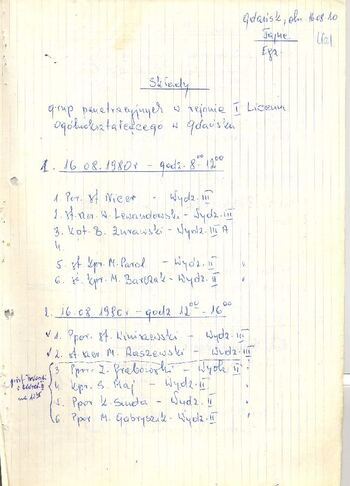 Gdańsk, dn. 16.08.80
Tajne
Egz.
Składy
grup penetracyjnych w rejonie I Liceum
Ogólnokształcącego w Gdańsku
1. 16.08.1980r - godz. 8⁰⁰ 12⁰⁰
1 Por. st Nicer - Wydz. III
2. st. sier. W. Lewandowski - Wydz. III
3. Kpt. B. Żurawski - Wydz. III A
4
5. st. kpr. M. Parol - Wydz. II "
6. st. kpr. M. Barczak - Wydz. II "
2. 16.08.1980r - godz 12⁰⁰ - 16⁰⁰
1. Ppor. st. Winiszewski - Wydz. III
2. st. sier M. Raszewski - Wydz. III
3 Ppor. Z. Grabowski - Wydz II "
4 kpr. S. Maj - Wydz. II "
5. Ppor K. Snuda - Wydz. II "
6 Ppor M. Gabryszik - Wydz. II "